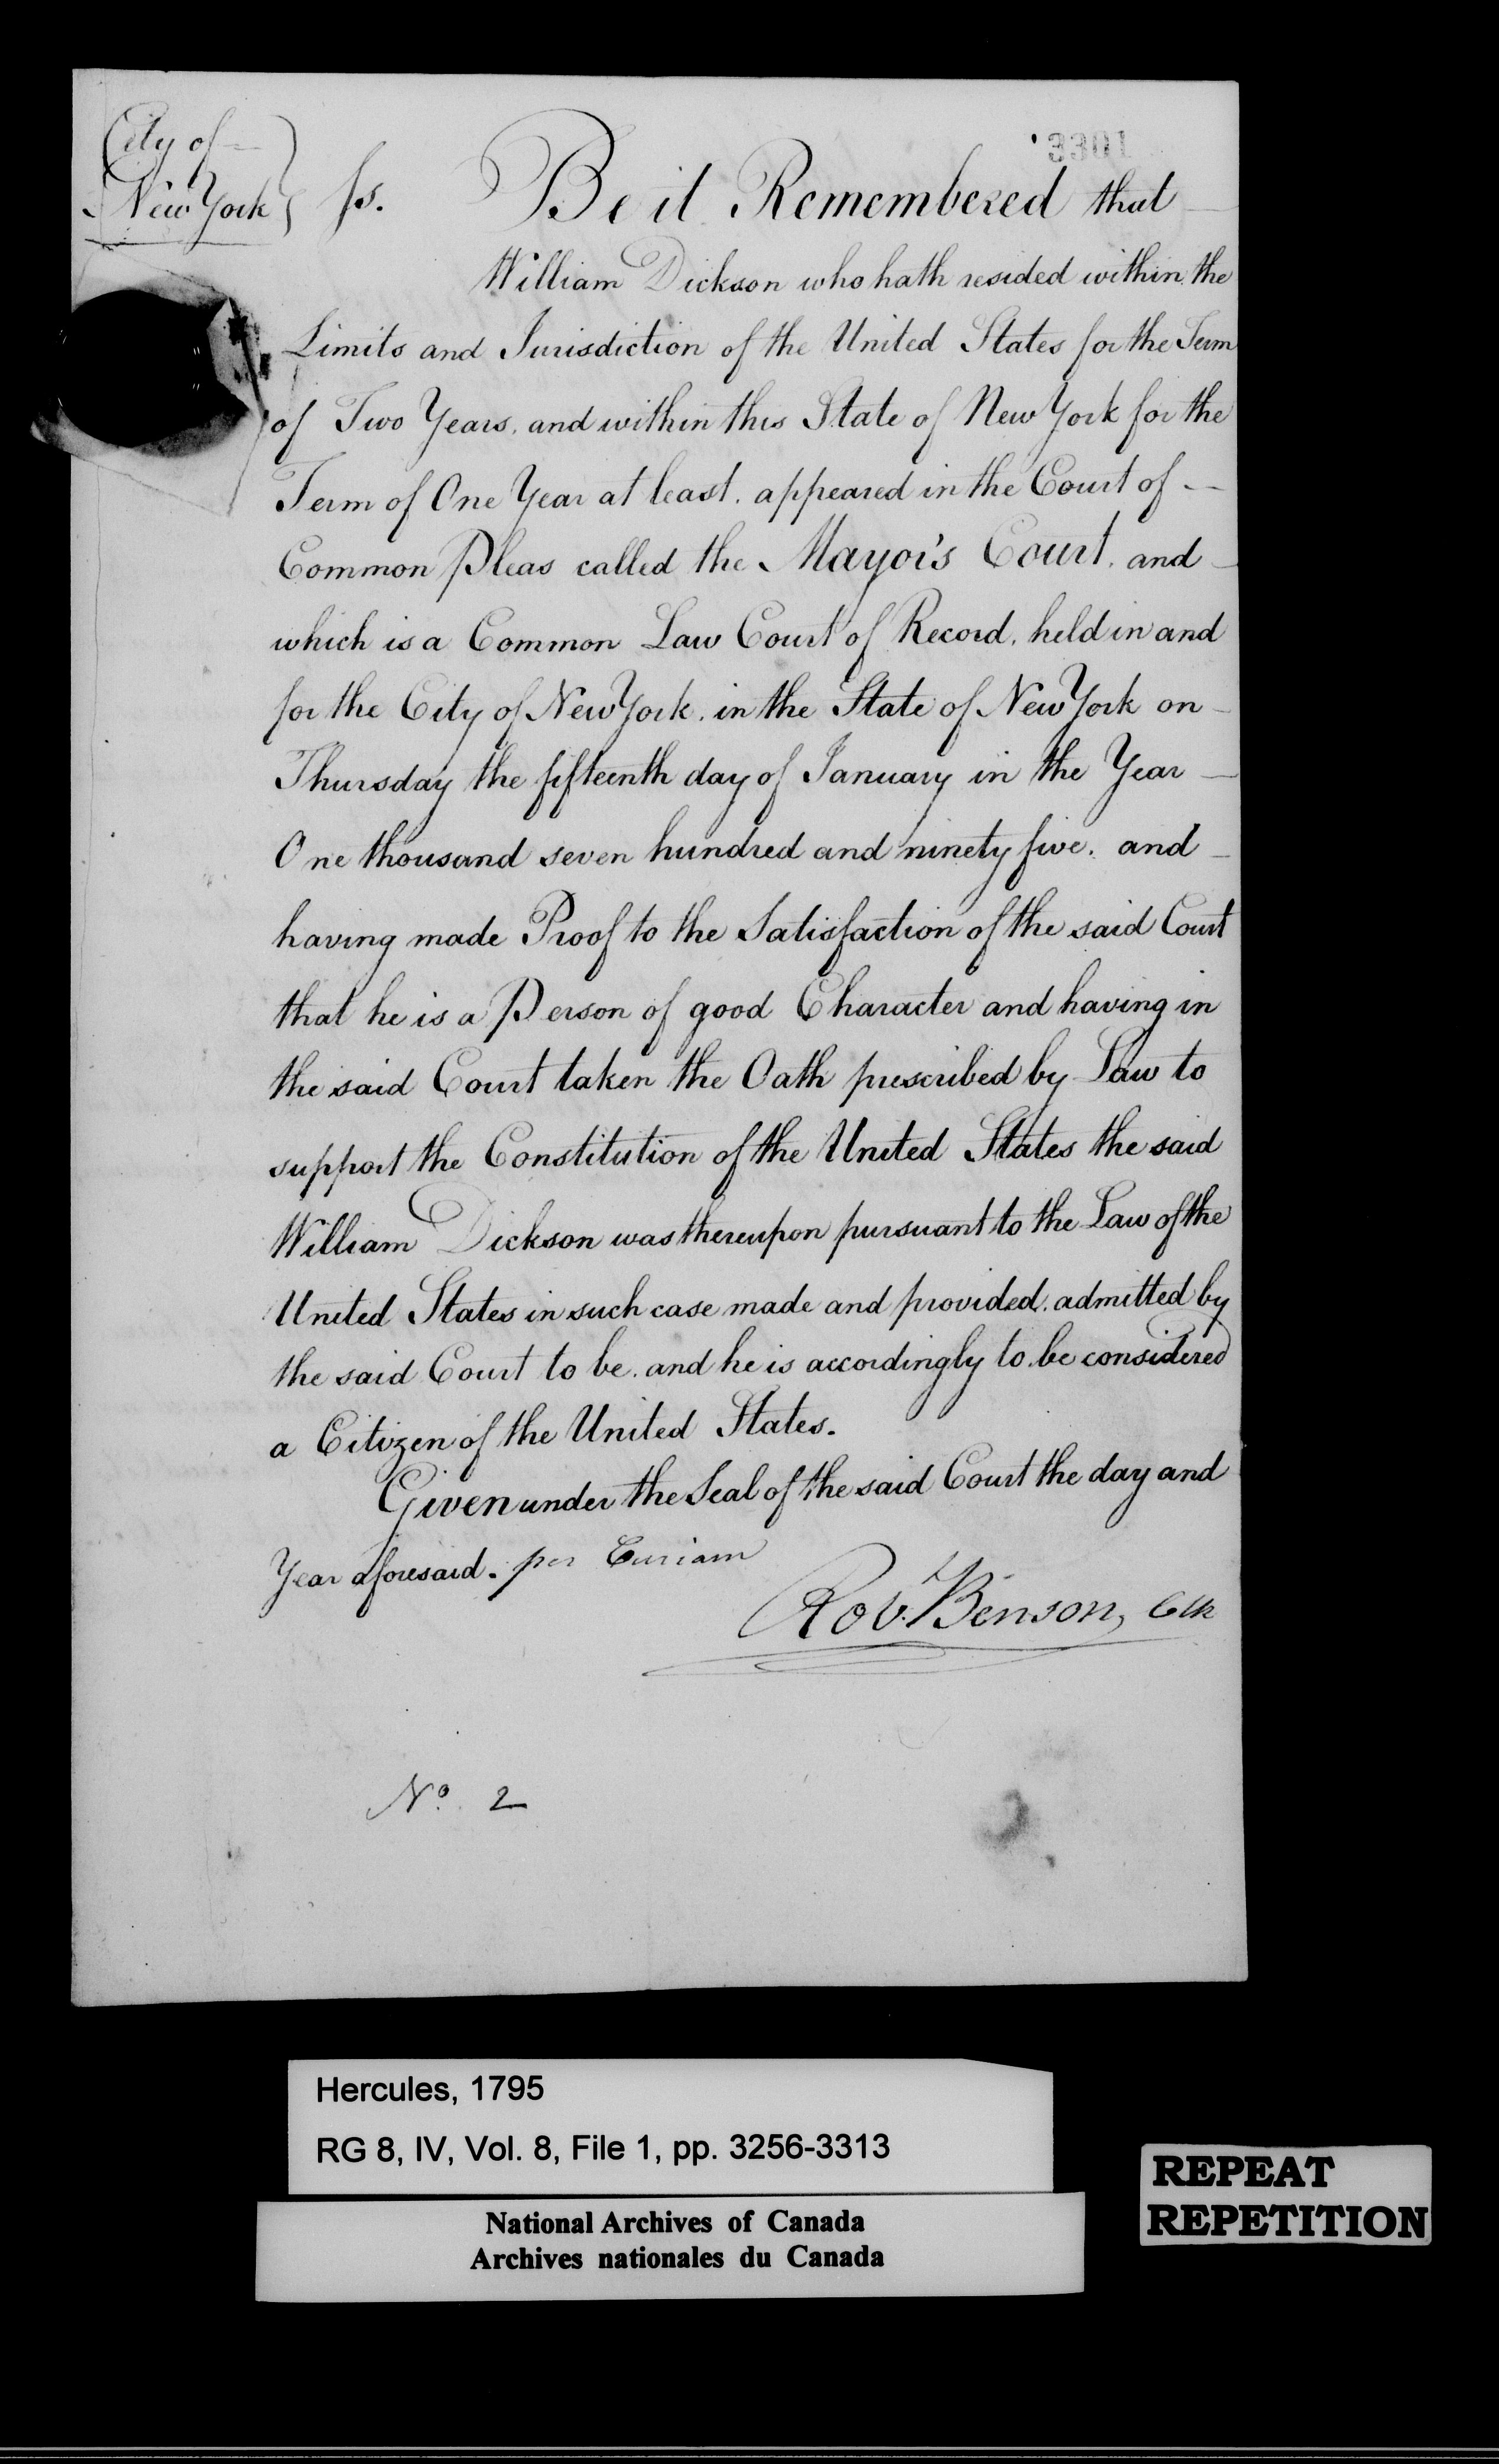 3301
City of
New York } ss. Be it Remembered that
William Dickson who hath resided within the
Limits and Jurisdiction of the United States for the Term
of Two Years, and within this State of New York for the
Term of One Year at least, appeared in the Court of
Common Pleas called the Mayor's Court, and
which is a Common Law Court of Record, held in and
for the City of New York, in the State of New York on
Thursday the fifteenth day of January in the Year
One thousand seven hundred and ninety five, and
having made Proof to the Satisfaction of the said Court
that he is a Person of good Character and having in
the said Court taken the Oath prescribed by Law to
support the Constitution of the United States the said
William Dickson was thereupon pursuant to the Law of the
United States in such case made and provided, admitted by
the said Court to be, and he is accordingly to be considered
a Citizen of the United States.
Given under the Seal of the said Court the day and
Year aforesaid. per Curiam
Rob. Benson, Clk
No. 2
Hercules, 1795
RG 8, IV, Vol. 8, File 1, pp. 3256-3313
National Archives of Canada
Archives nationales du Canada
REPEAT
REPETITION